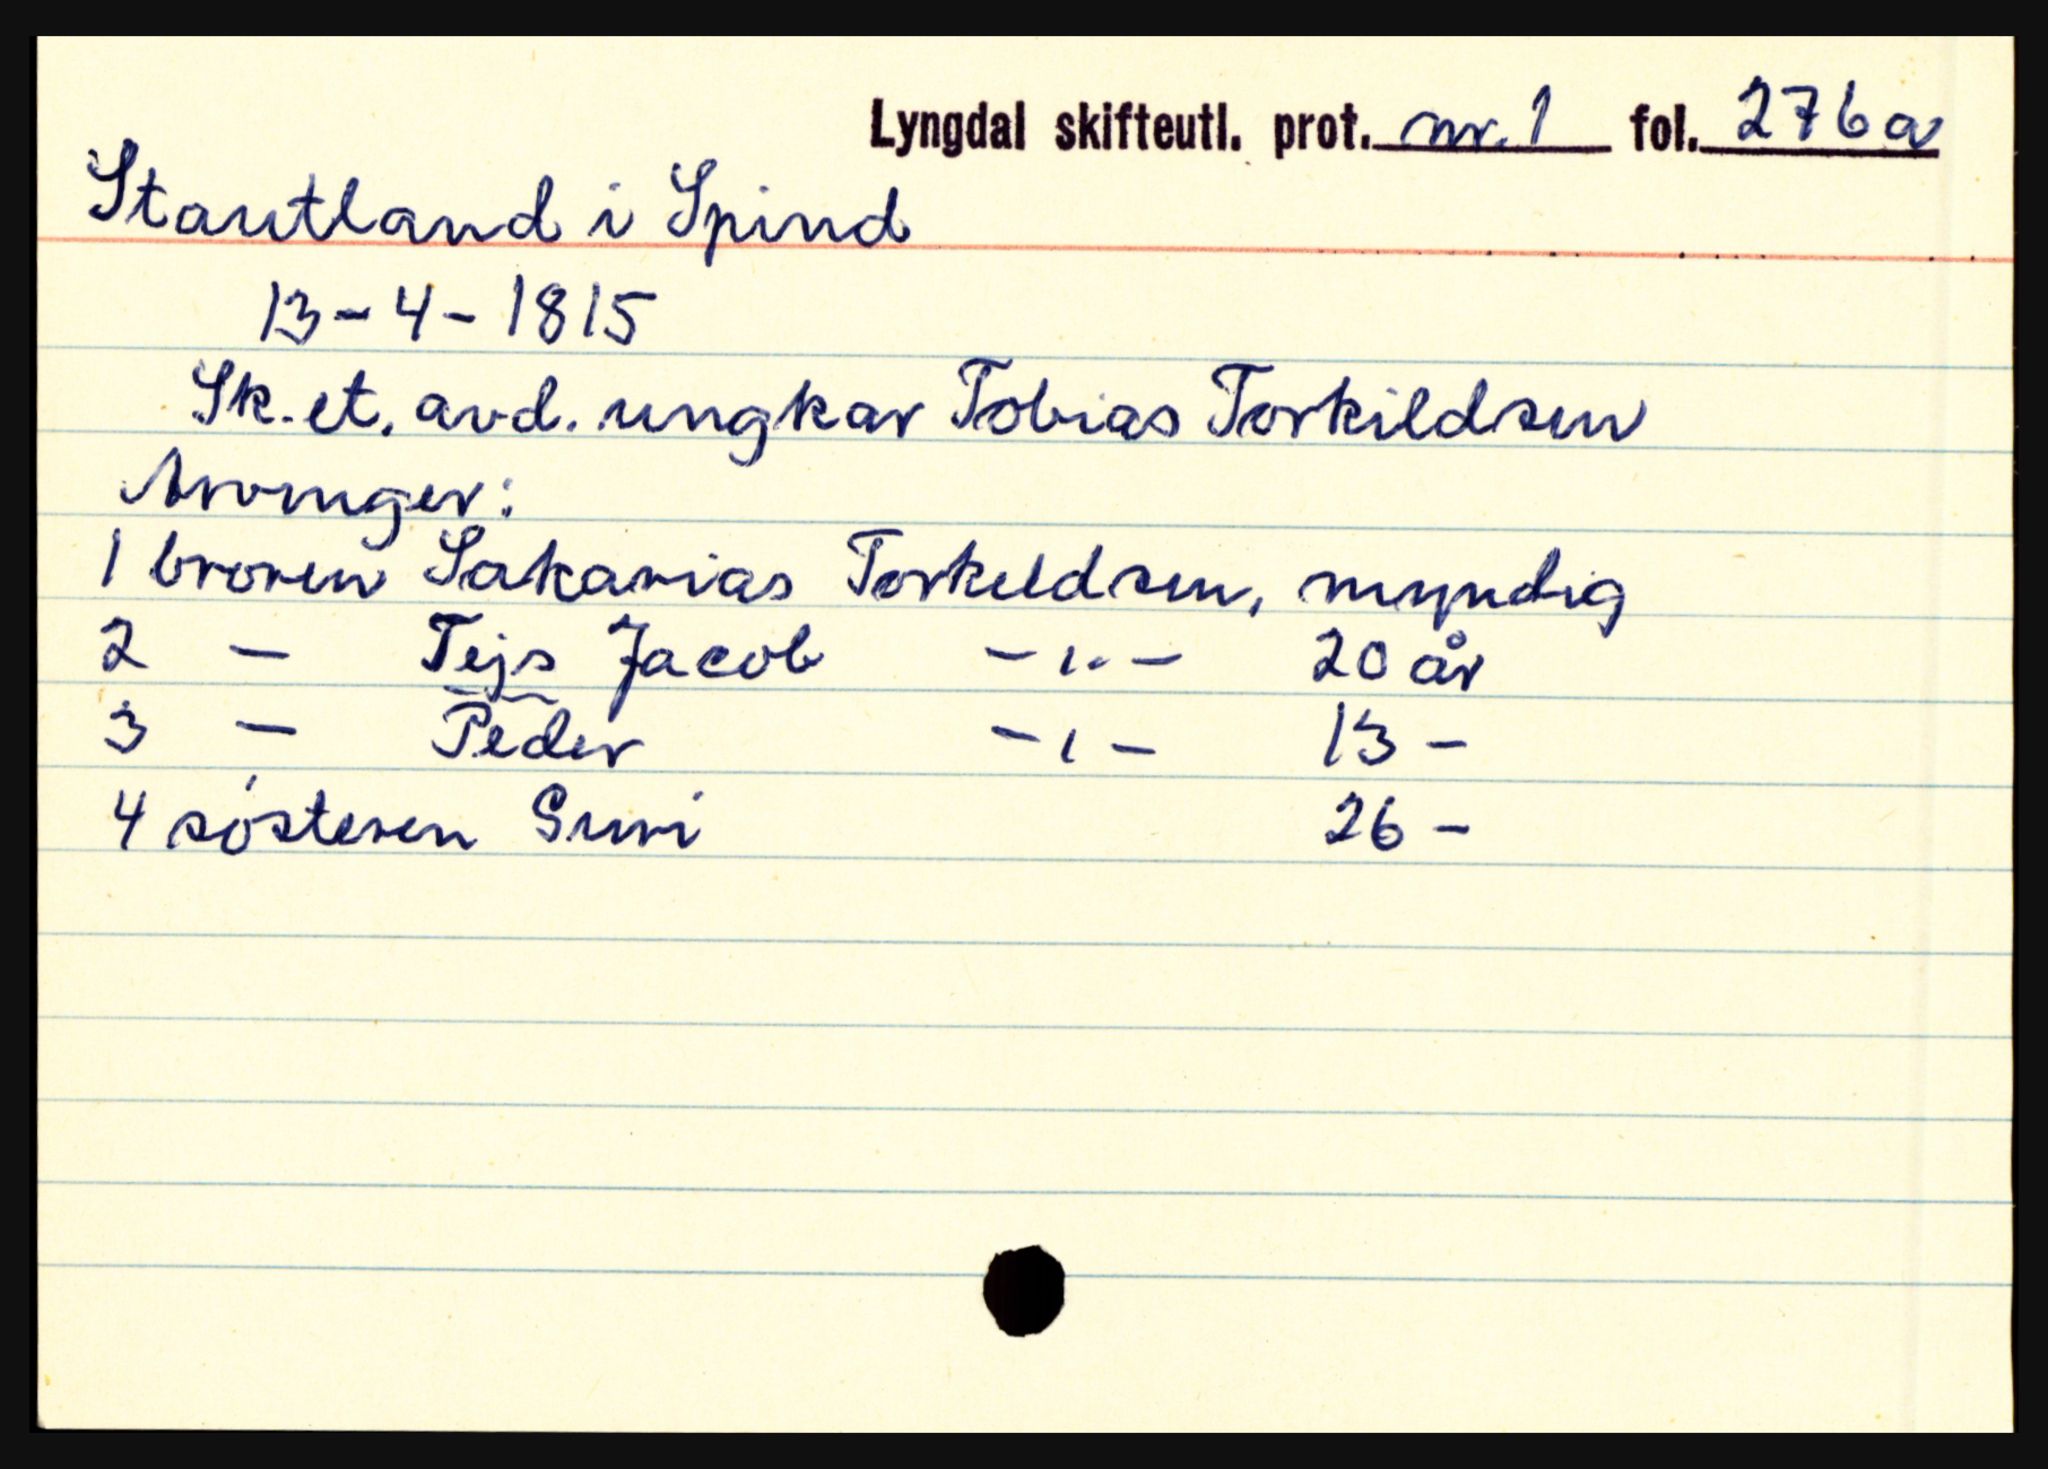 Lyngdal skifteutl. prot. nr. 1 fol. 276 a
Stautland i Spind
13-4-1815
Sk. et. avd. ungkar Tobias Torkildsen
Arvinger:
1 broren Sakarias Torkeldsen, myndig
2 — Tejs Jacob -"- 20 år
3 — Peder -"- 13 -
4 søsteren Guri 26 -